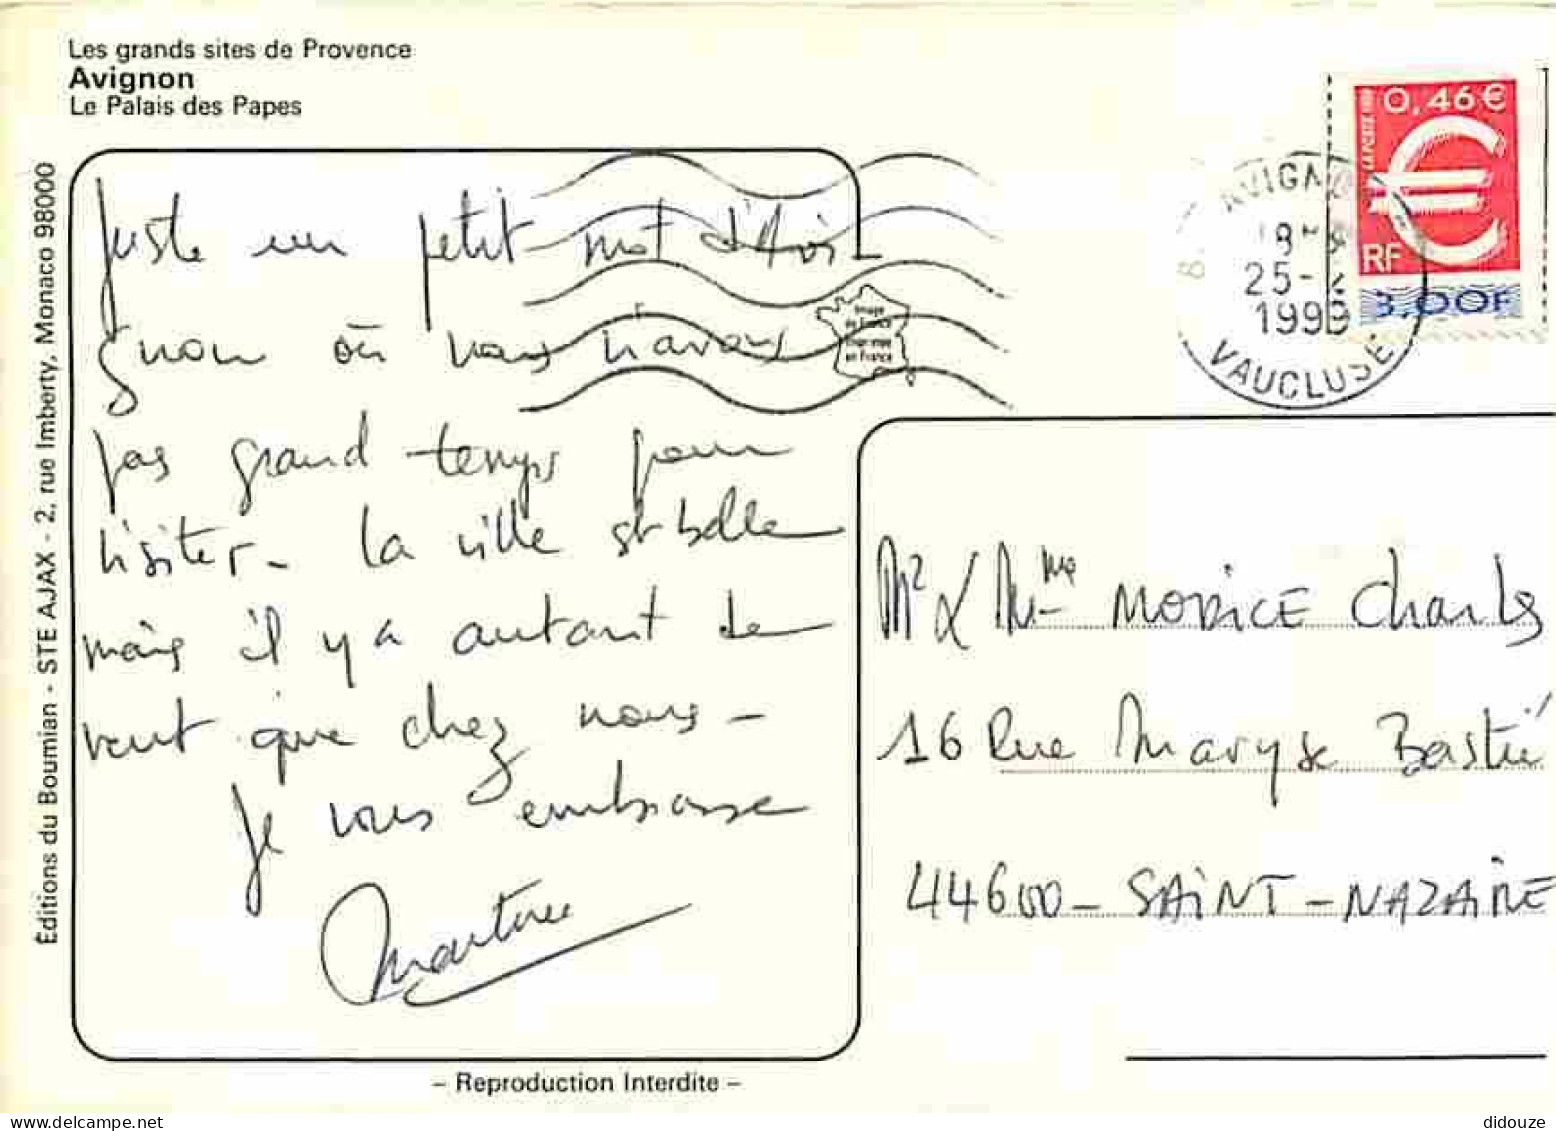 Les grands sites de Provence
Avignon
Le Palais des Papes
Éditions du Boumian - STE AJAX - 2, rue Imberty, Monaco 98000
Juste un petit mot d'Avi-
gnon où nous n'avons
pas grand temps pour
visiter - la ville est belle
mais il y a autant de
vent que chez nous -
Je vous embrasse
Martine
Image
de France
Imprimée
en France
0,46€
LA POSTE 1999
RF
3,00F
AVIGNO
25-
1999
VAUCLUSE
Mr & Mme MORICE Charles
16 Rue Maryse Bastié
44600 - SAINT - NAZAIRE
– Reproduction Interdite –
didouze